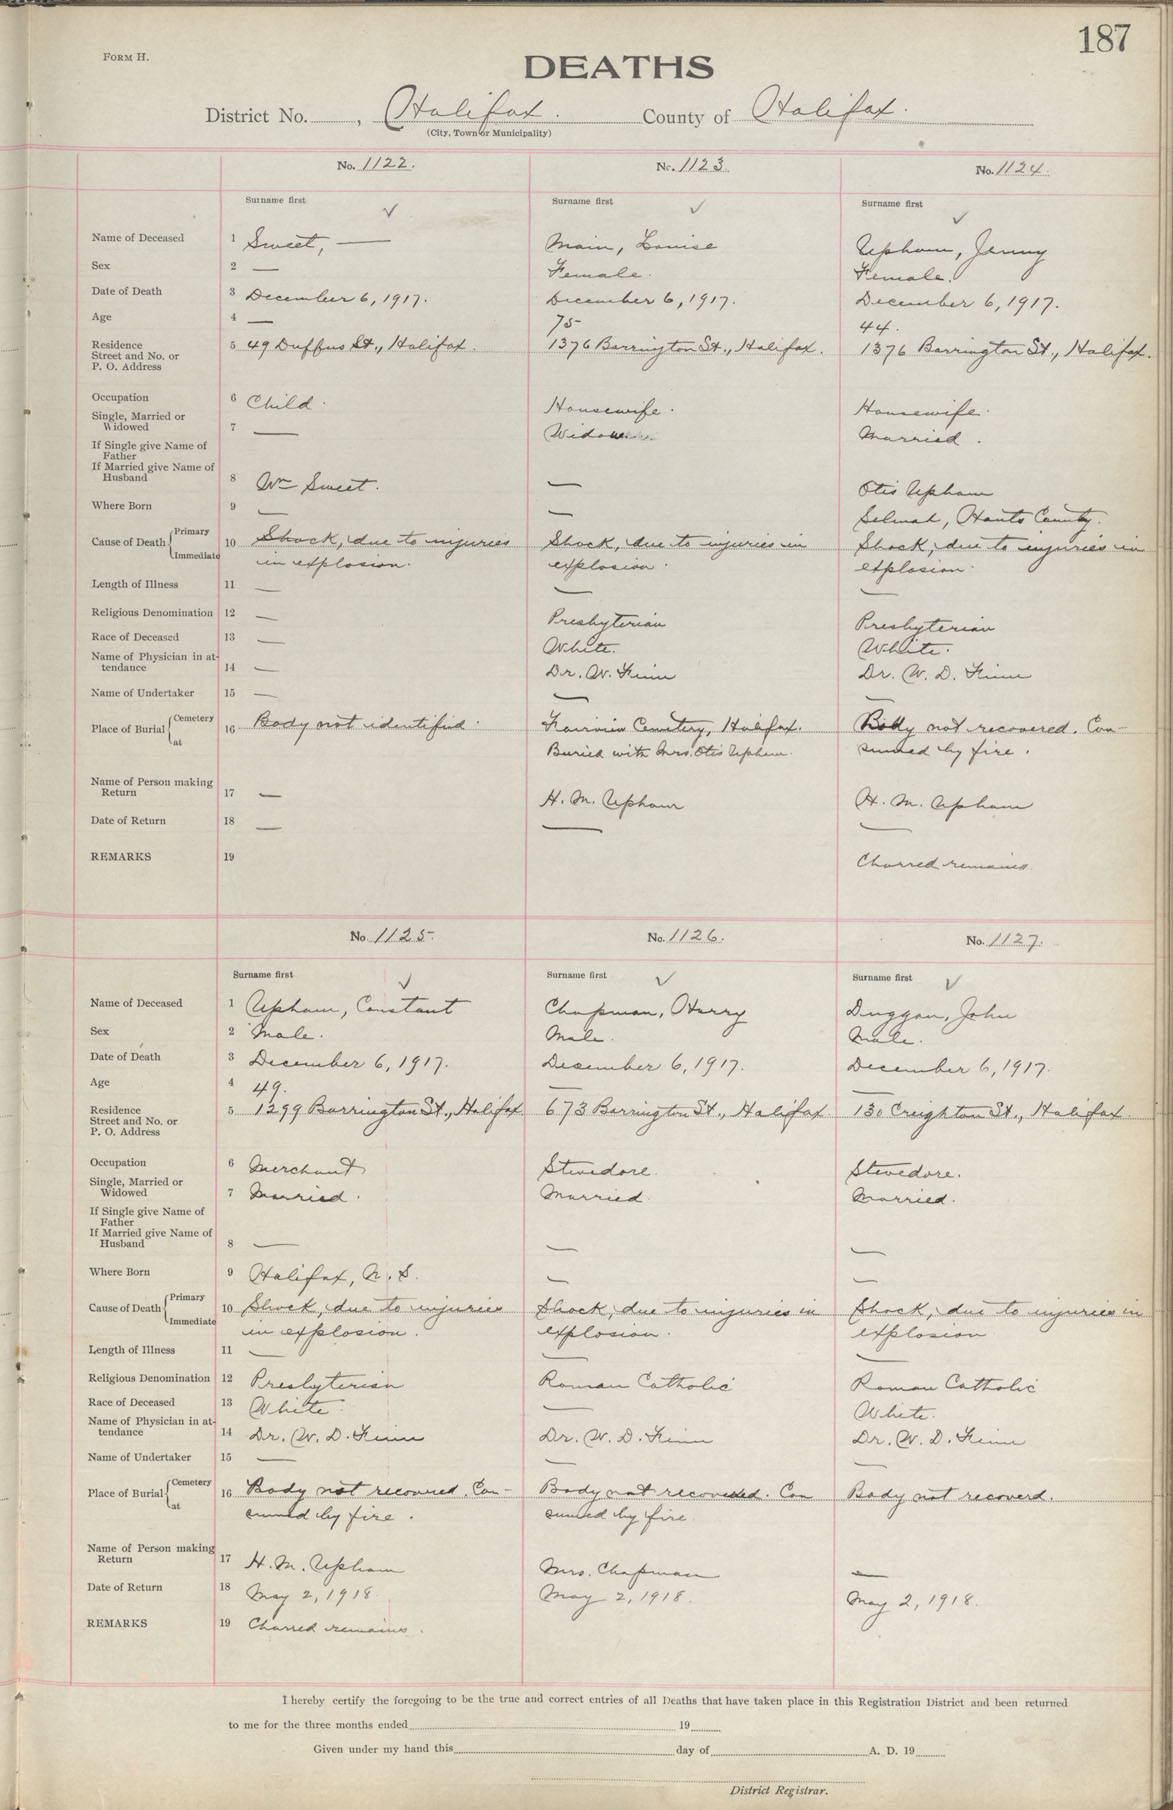 187
FORM H.
DEATHS
District No. , Halifax. County of Halifax.
(City, Town or Municipality)
No. 1122. No. 1123. No. 1124.
Surname first Surname first Surname first
Name of Deceased 1 Sweet, — Main, Louise Upham, Jenny
Sex 2 — Female. Female.
Date of Death 3 December 6, 1917. December 6, 1917. December 6, 1917.
Age 4 — 75 44.
Residence 5 49 Duffus St., Halifax. 1376 Barrington St., Halifax. 1376 Barrington St., Halifax.
Street and No. or
P. O. Address
Occupation 6 Child. Housewife. Housewife.
Single, Married or
Widowed 7 — Widow Married.
If Single give Name of
Father
If Married give Name of
Husband 8 Wm Sweet. — Otis Upham
Where Born 9 — — Selmah, Hants County.
Cause of Death Primary
Immediate 10 Shock, due to injuries Shock, due to injuries in Shock, due to injuries in
in explosion. explosion. explosion.
Length of Illness 11 — — —
Religious Denomination 12 — Presbyterian Presbyterian
Race of Deceased 13 — White. White.
Name of Physician in at-
tendance 14 — Dr. W. Finn Dr. W. D. Finn
Name of Undertaker 15 — — —
Place of Burial Cemetery
at 16 Body not identified. Fairview Cemetery, Halifax. Body not recovered. Con-
Buried with Mrs. Otis Upham. sumed by fire.
Name of Person making
Return 17 — H. M. Upham H. M. Upham
Date of Return 18 — — —
REMARKS 19 Charred remains.
No. 1125. No. 1126. No. 1127.
Surname first Surname first Surname first
Name of Deceased 1 Upham, Constant Chapman, Harry Duggan, John
Sex 2 Male. Male. Male.
Date of Death 3 December 6, 1917. December 6, 1917. December 6, 1917.
Age 4 49. — —
Residence 5 1299 Barrington St., Halifax 673 Barrington St., Halifax. 130 Creighton St., Halifax.
Street and No. or
P. O. Address
Occupation 6 Merchant Stevedore. Stevedore.
Single, Married or
Widowed 7 Married. Married. Married.
If Single give Name of
Father
If Married give Name of
Husband 8 — — —
Where Born 9 Halifax, N. S. — —
Cause of Death Primary
Immediate 10 Shock, due to injuries Shock, due to injuries in Shock, due to injuries in
in explosion. explosion. explosion
Length of Illness 11 — — —
Religious Denomination 12 Presbyterian Roman Catholic Roman Catholic
Race of Deceased 13 White. — White.
Name of Physician in at-
tendance 14 Dr. W. D. Finn Dr. W. D. Finn Dr. W. D. Finn
Name of Undertaker 15 — — —
Place of Burial Cemetery
at 16 Body not recovered. Con- Body not recovered. Con Body not recoverd.
sumed by fire. sumed by fire.
Name of Person making
Return 17 H. M. Upham Mrs. Chapman —
Date of Return 18 May 2, 1918. May 2, 1918. May 2, 1918.
REMARKS 19 Charred remains.
I hereby certify the foregoing to be the true and correct entries of all Deaths that have taken place in this Registration District and been returned
to me for the three months ended 19
Given under my hand this day of A. D. 19
District Registrar.